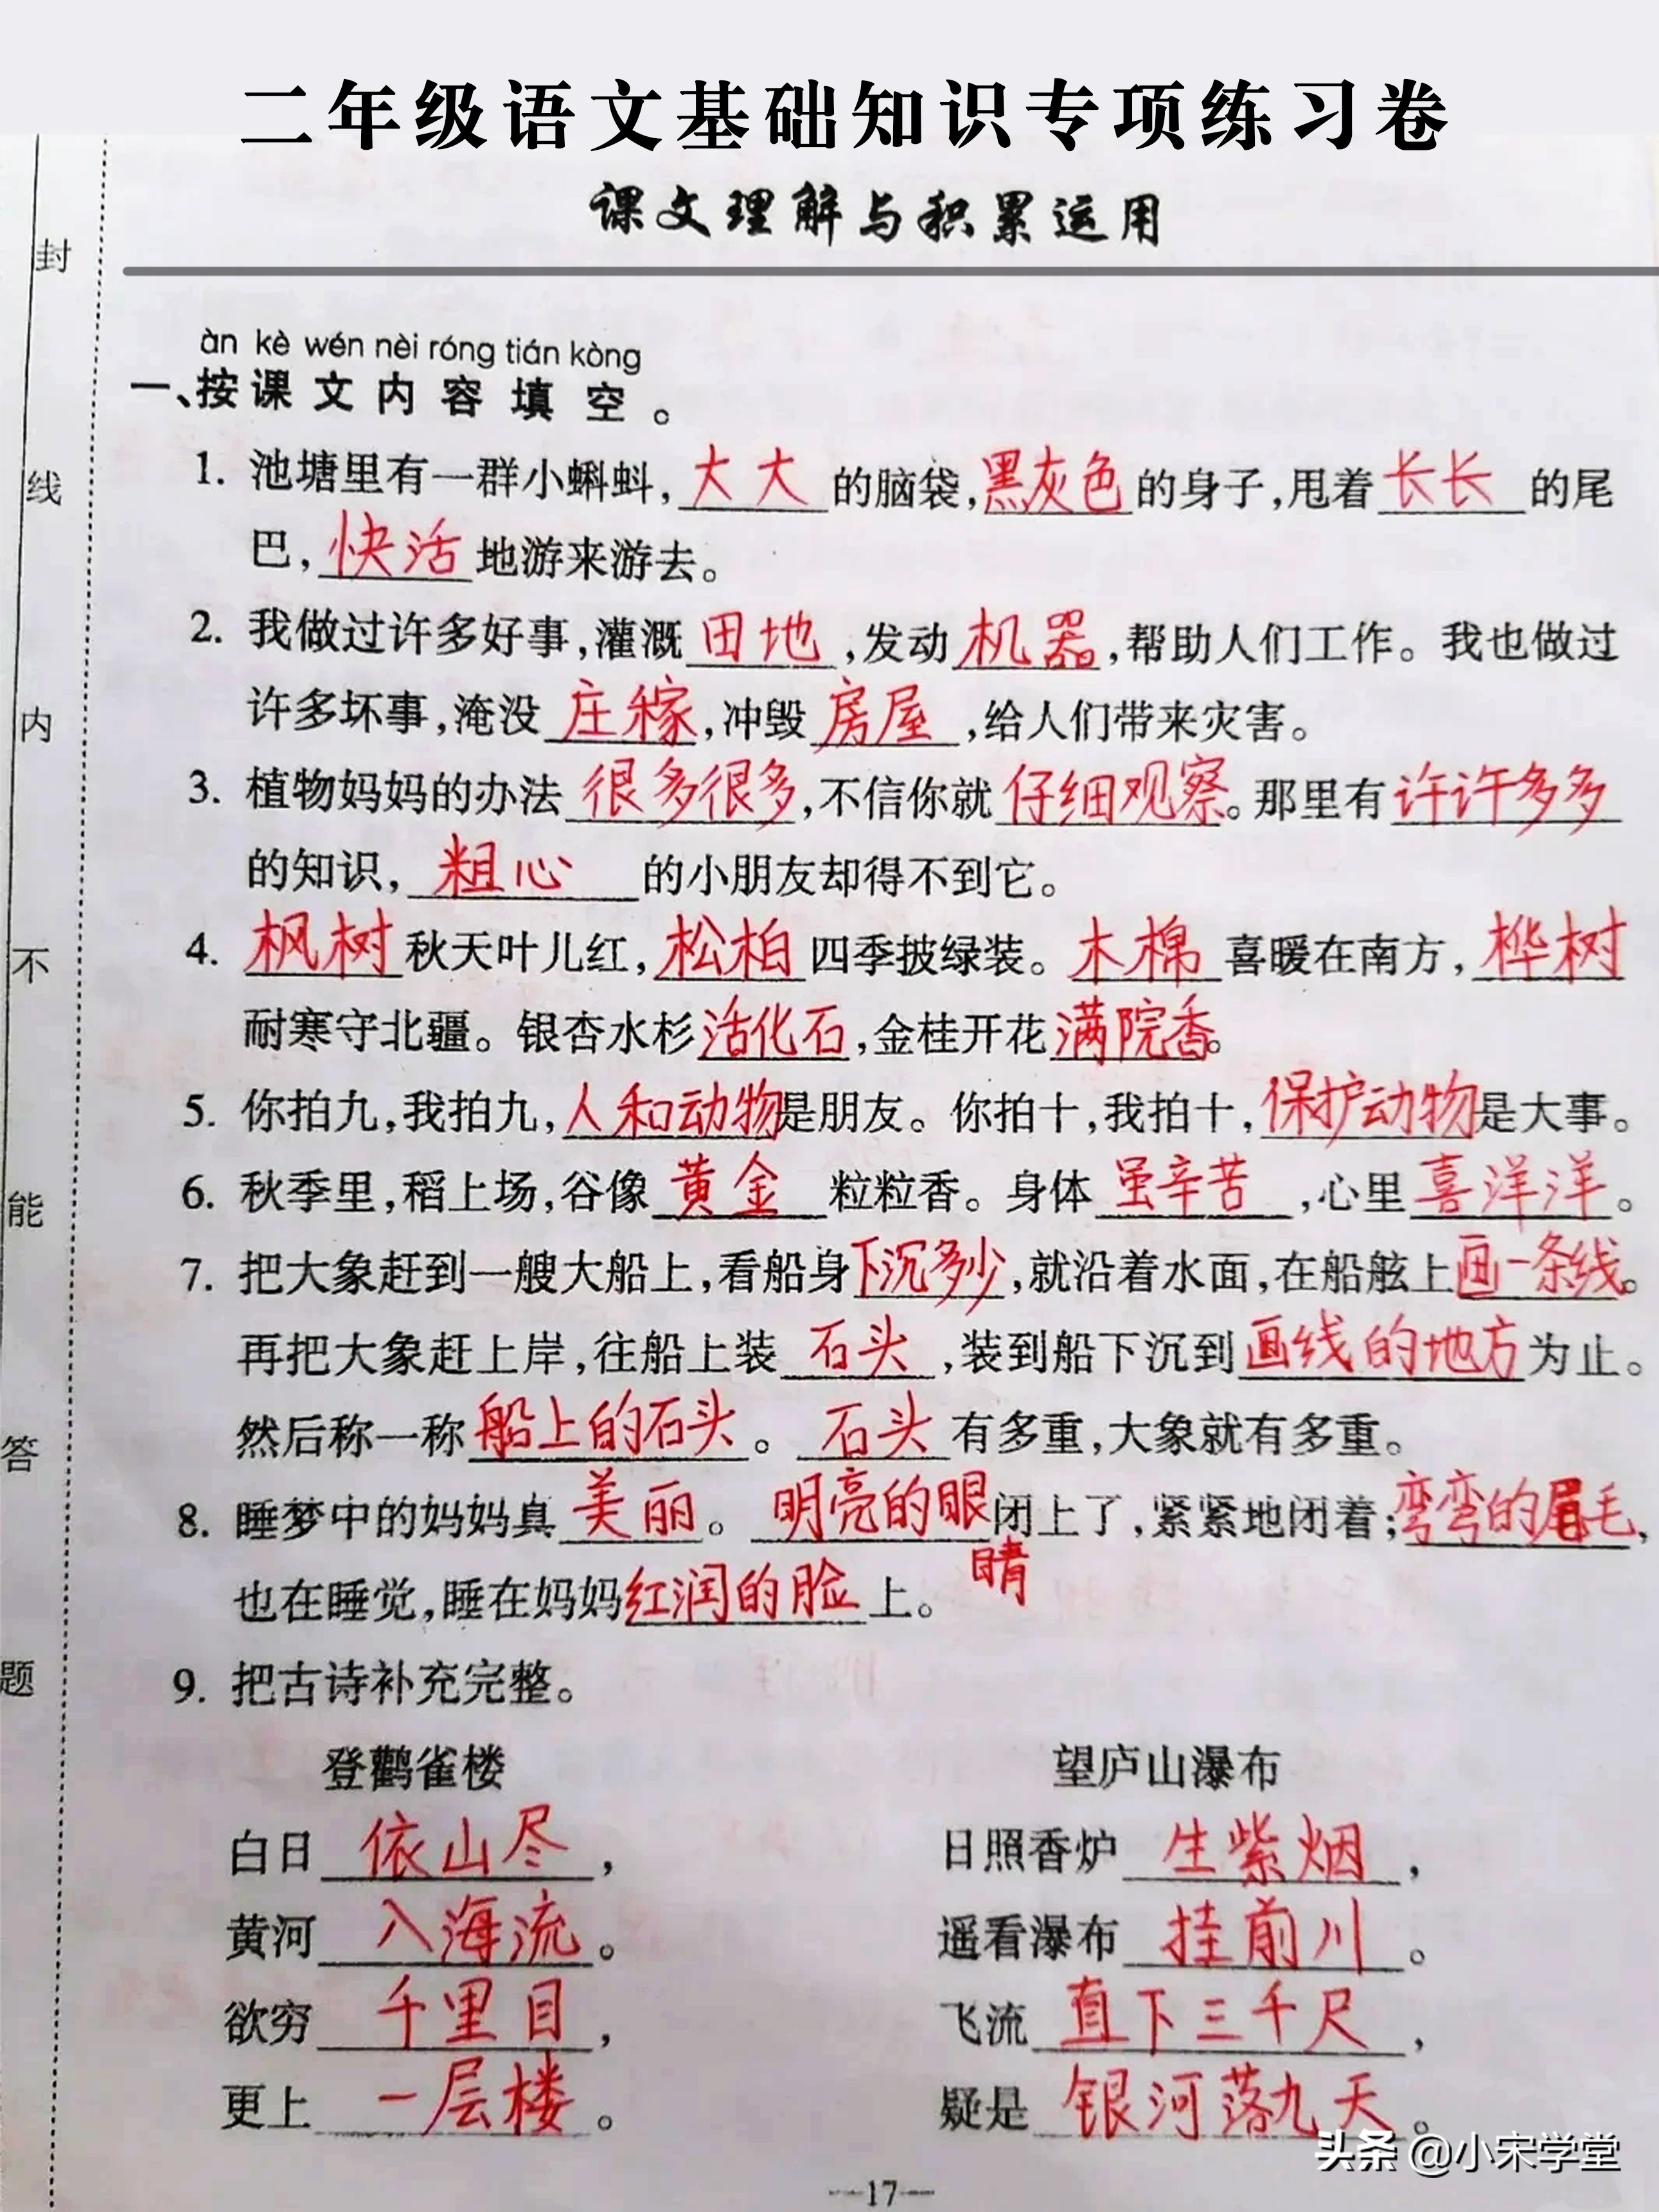 二年级语文基础知识专项练习卷
课文理解与积累运用
封
线
内
不
能
答
题
àn kè wén nèi róng tián kòng
一、按课文内容填空。
1. 池塘里有一群小蝌蚪,大大的脑袋,黑灰色的身子,甩着长长的尾
巴,快活地游来游去。
2. 我做过许多好事,灌溉田地,发动机器,帮助人们工作。我也做过
许多坏事,淹没庄稼,冲毁房屋,给人们带来灾害。
3. 植物妈妈的办法很多很多,不信你就仔细观察。那里有许许多多
的知识,粗心的小朋友却得不到它。
4. 枫树秋天叶儿红,松柏四季披绿装。木棉喜暖在南方,桦树
耐寒守北疆。银杏水杉活化石,金桂开花满院香。
5. 你拍九,我拍九,人和动物是朋友。你拍十,我拍十,保护动物是大事。
6. 秋季里,稻上场,谷像黄金粒粒香。身体虽辛苦,心里喜洋洋。
7. 把大象赶到一艘大船上,看船身下沉多少,就沿着水面,在船舷上画一条线。
再把大象赶上岸,往船上装石头,装到船下沉到画线的地方为止。
然后称一称船上的石头。石头有多重,大象就有多重。
8. 睡梦中的妈妈真美丽。明亮的眼睛闭上了,紧紧地闭着;弯弯的眉毛,
也在睡觉,睡在妈妈红润的脸上。
9. 把古诗补充完整。
登鹳雀楼
白日依山尽,
黄河入海流。
欲穷千里目,
更上一层楼。
望庐山瀑布
日照香炉生紫烟,
遥看瀑布挂前川。
飞流直下三千尺,
疑是银河落九天。
—17—
头条 @小宋学堂